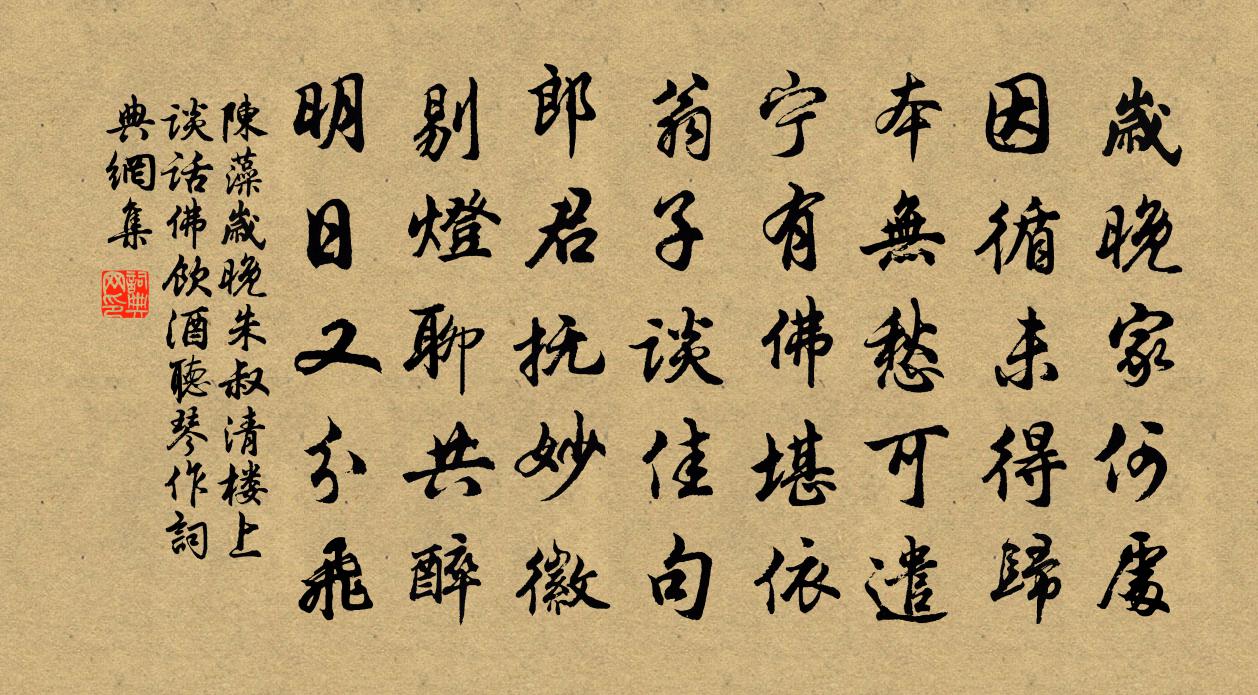 歲晚家何處
因循未得歸
本無愁可遣
宁有佛堪依
翁子談佳句
郎君抚妙徽
剔燈聊共醉
明日又分飛
陳藻歲晚朱叔清楼上
談話佛飲酒聽琴作詞
典網集
詞典网印